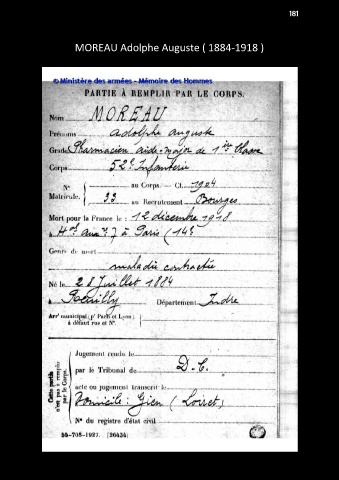 181
MOREAU Adolphe Auguste ( 1884-1918 )
©Ministère des armées - Mémoire des Hommes
PARTIE À REMPLIR PAR LE CORPS.
Nom MOREAU
Prénoms adolphe auguste
Grade Pharmacien aide-major de 1ère Classe
Corps 52e Infanterie
N° Matricule. au Corps. — Cl. 1904
33 au Recrutement Bourges
Mort pour la France le : 12 décembre 1918
à à Paris (14e
Genre de mort
maladie contractée
Né le 28 Juillet 1884
à Reuilly Département Indre
Arrt municipal (pr Paris et Lyon)
à défaut rue et N°.
Cette partie n'est pas à remplir par le Corps.
Jugement rendu le
par le Tribunal de D.C.
acte ou jugement transcrit le
Domicile : Gien (Loiret)
N° du registre d'état civil
55-708-1921. [26434]